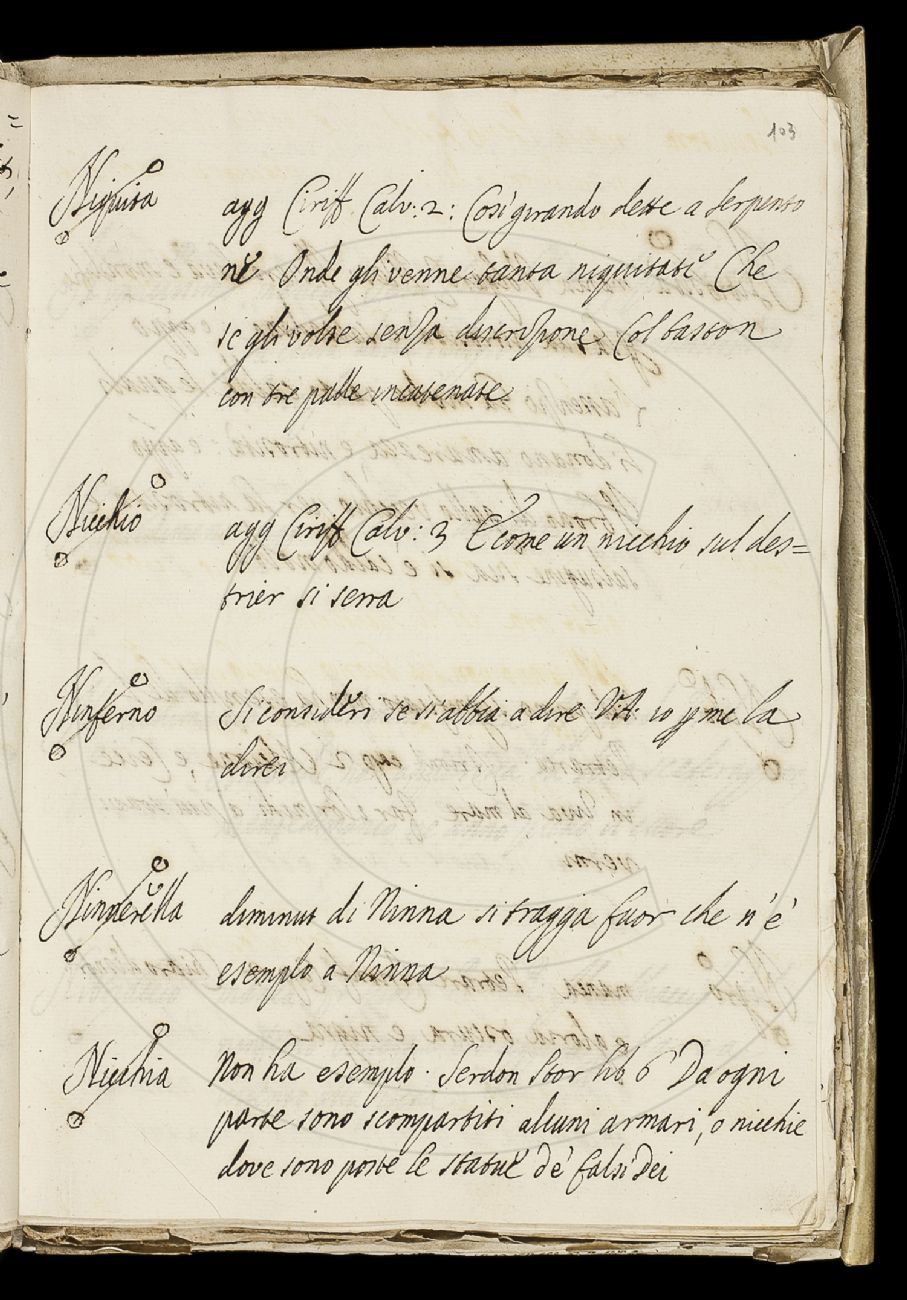 103
Niquità agg Ciriff. Calv: 2: Cosi girando dette a serpento
ne Onde gli venne tanta niquitate Che
se gli volse senza discrizione Col baston
con tre palle incatenate
Nicchio agg Ciriff Calv: 3 E come un nicchio sul des=
trier si serra
Ninferno Si consideri se si abbia a dire V. A. io p me la
direi
Ninnerella diminut di Ninna si tragga fuor che n'è
esemplo a Ninna
Nicchia Non ha esemplo. Serdon Stor lib 6 Da ogni
parte sono scompartiti alcuni armari, o nicchie
dove sono poste le statue de' falsi Dei